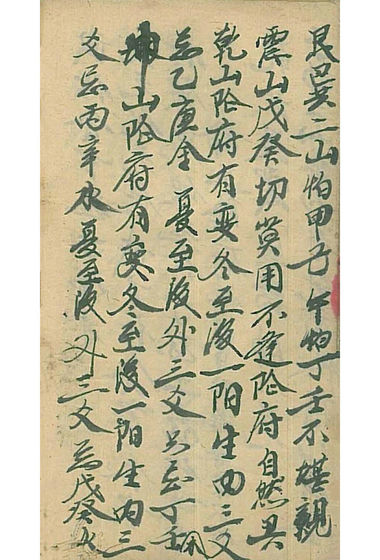 艮巽二山怕甲己午怕丁壬不堪親
震山戊癸切莫用不逢陰府自然兴
乾山陰府有变冬至後一阳生内三爻
忌乙庚金 夏至後外三爻只忌丁壬木
坤山陰府有变冬至後一阳生内三
爻忌丙辛水夏至後外三爻忌戊癸火